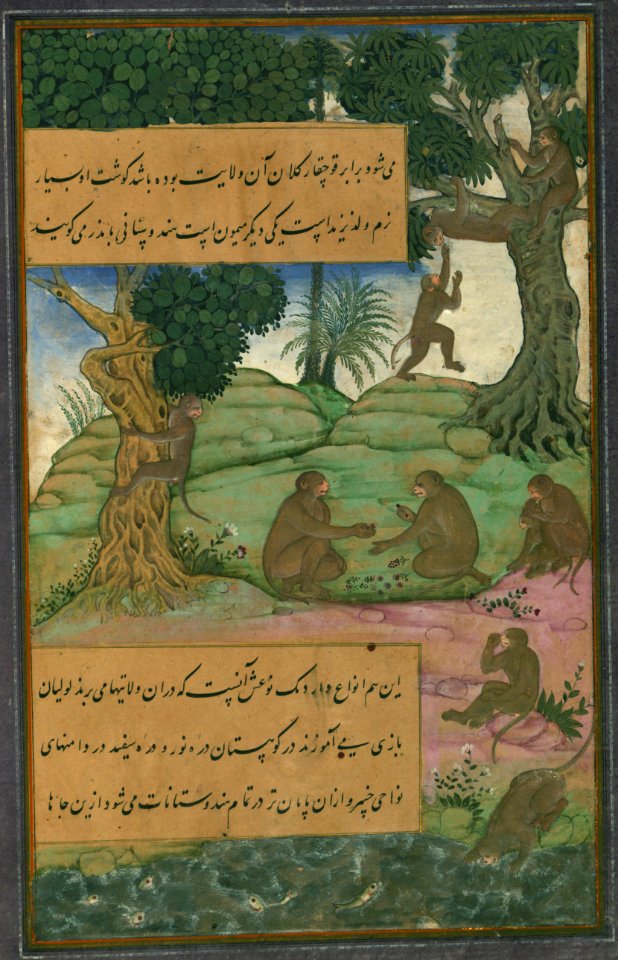 می شود برابر قوچقار کلان آن ولایت بوده باشد گوشت او بسیار
نرم و لذیذ است یکی دیگر میمون است هندوستانی باندر می گویند
این هم انواع دارد یک نوعش آنست که در ان ولایتها می برند لولیان
بازی می آموزند در کوهستان دره نور و دره سفید در دامنهای
نواحی خیبر و ازان پایان تر در تمام هندوستانات می شود ازین جاها